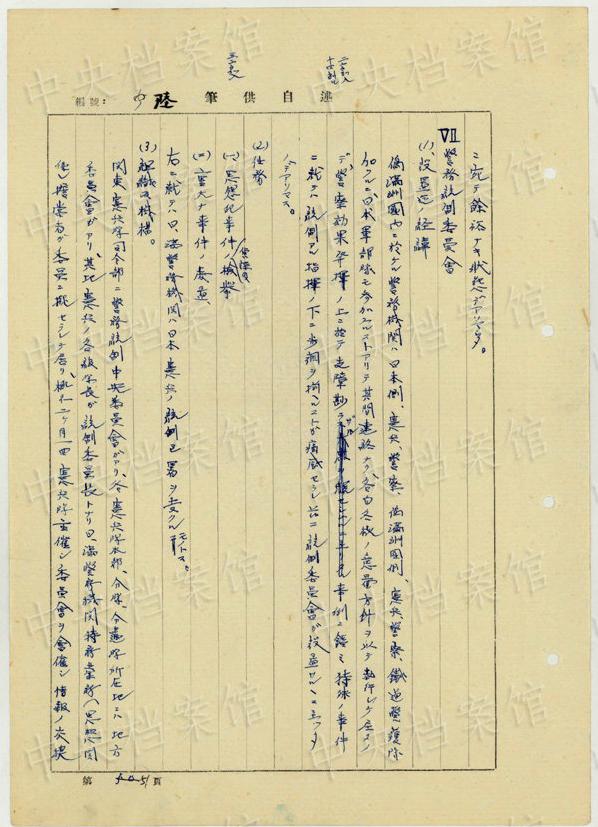 述自供筆
陸
編號:
ニ完テ餘裕ナキ状態デアリマス。
Ⅶ 警務統制委員會
(1)、設置迄ノ経緯
偽満洲國内ニ於ケル警務機関ハ日本側、憲兵、警察、偽満洲國側、憲兵、警察、鐵道警護隊
加フルニ、日本軍部隊モ参加スルコトアリテ其間連絡ナク、各自各様ノ意図方針ヲ以テ執行シテ居タノ
デ、警察効果発揮ノ上ニ於テ支障勘カラザル事例ニ鑑ミ特殊ノ事件
ニ就テハ統制アル指揮ノ下ニ歩調ヲ揃ヘルコトガ痛感セラレ茲ニ統制委員會ガ設置セラルルニ至ツタノ
デアリマス。
(2) 任務
(一)、思想犯事件ノ偵諜及検挙
(二)、重大ナ事件ノ処置
右ニ就テハ日、満警務機関ハ日本憲兵ノ統制区署ヲ受クルモノトス。
(3)、組織及機構。
関東憲兵隊司令部ニ警務統制中央委員會ガアリ、各憲兵隊本部、分隊、分遣隊所在地ニハ地方
委員會ガアリ、其地憲兵ノ各級隊長ガ統制委員長トナリ日、満警務機関特務業務(思想関
係)擔当者ガ委員ニ擬セラレテ居リ概ネ一ヶ月一回憲兵隊主催シ委員會ヲ會催シ情報ノ交換
第 51 頁
中央档案馆